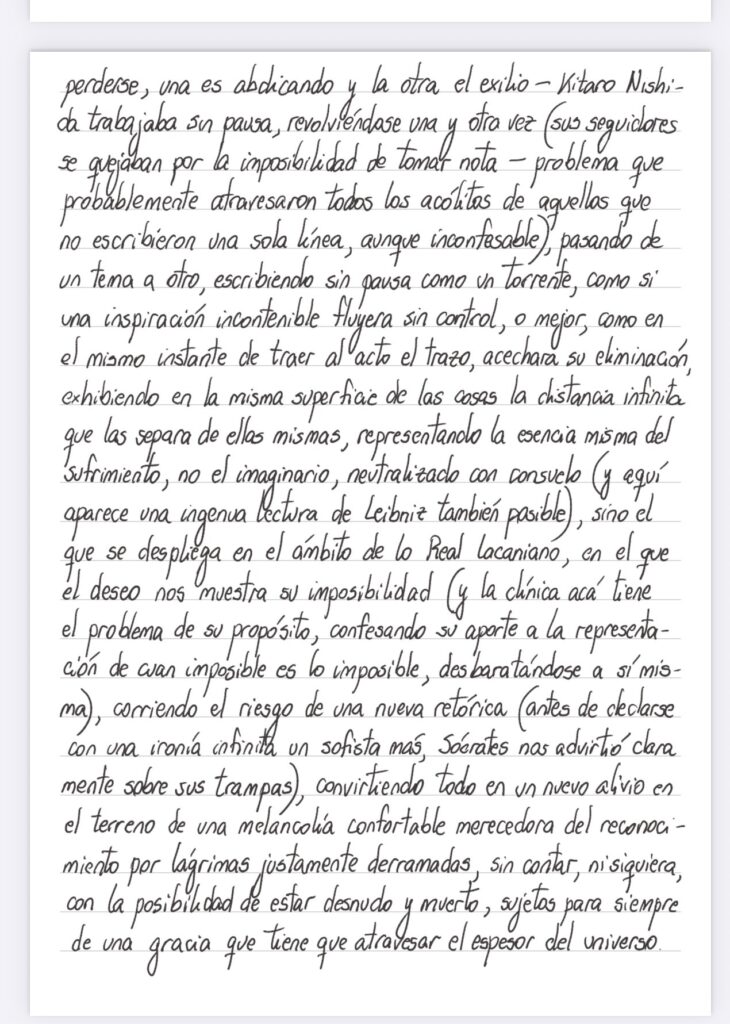 perderse, una es abdicando y la otra el exilio – Kitaro Nishi-
da trabajaba sin pausa, revolviéndose una y otra vez (sus seguidores
se quejaban por la imposibilidad de tomar nota – problema que
probablemente atravesaron todos los acólitos de aquellos que
no escribieron una sola línea, aunque inconfesable), pasando de
un tema a otro, escribiendo sin pausa como un torrente, como si
una inspiración incontenible fluyera sin control, o mejor, como en
el mismo instante de traer al acto el trazo, acechara su eliminación,
exhibiendo en la misma superficie de las cosas la distancia infinita
que las separa de ellas mismas, representando la esencia misma del
sufrimiento, no el imaginario, neutralizado con consuelo (y aquí
aparece una ingenua lectura de Leibniz también posible), sino el
que se despliega en el ámbito de lo Real lacaniano, en el que
el deseo nos muestra su imposibilidad (y la clínica acá tiene
el problema de su propósito, confesando su aporte a la representa-
ción de cuan imposible es lo imposible, desbaratándose a sí mis-
ma), corriendo el riesgo de una nueva retórica (antes de declarse
con una ironía infinita un sofista más, Sócrates nos advirtió clara
mente sobre sus trampas), convirtiendo todo en un nuevo alivio en
el terreno de una melancolía confortable merecedora del reconoci-
miento por lágrimas justamente derramadas, sin contar, ni siquiera,
con la posibilidad de estar desnudo y muerto, sujetos para siempre
de una gracia que tiene que atravesar el espesor del universo.